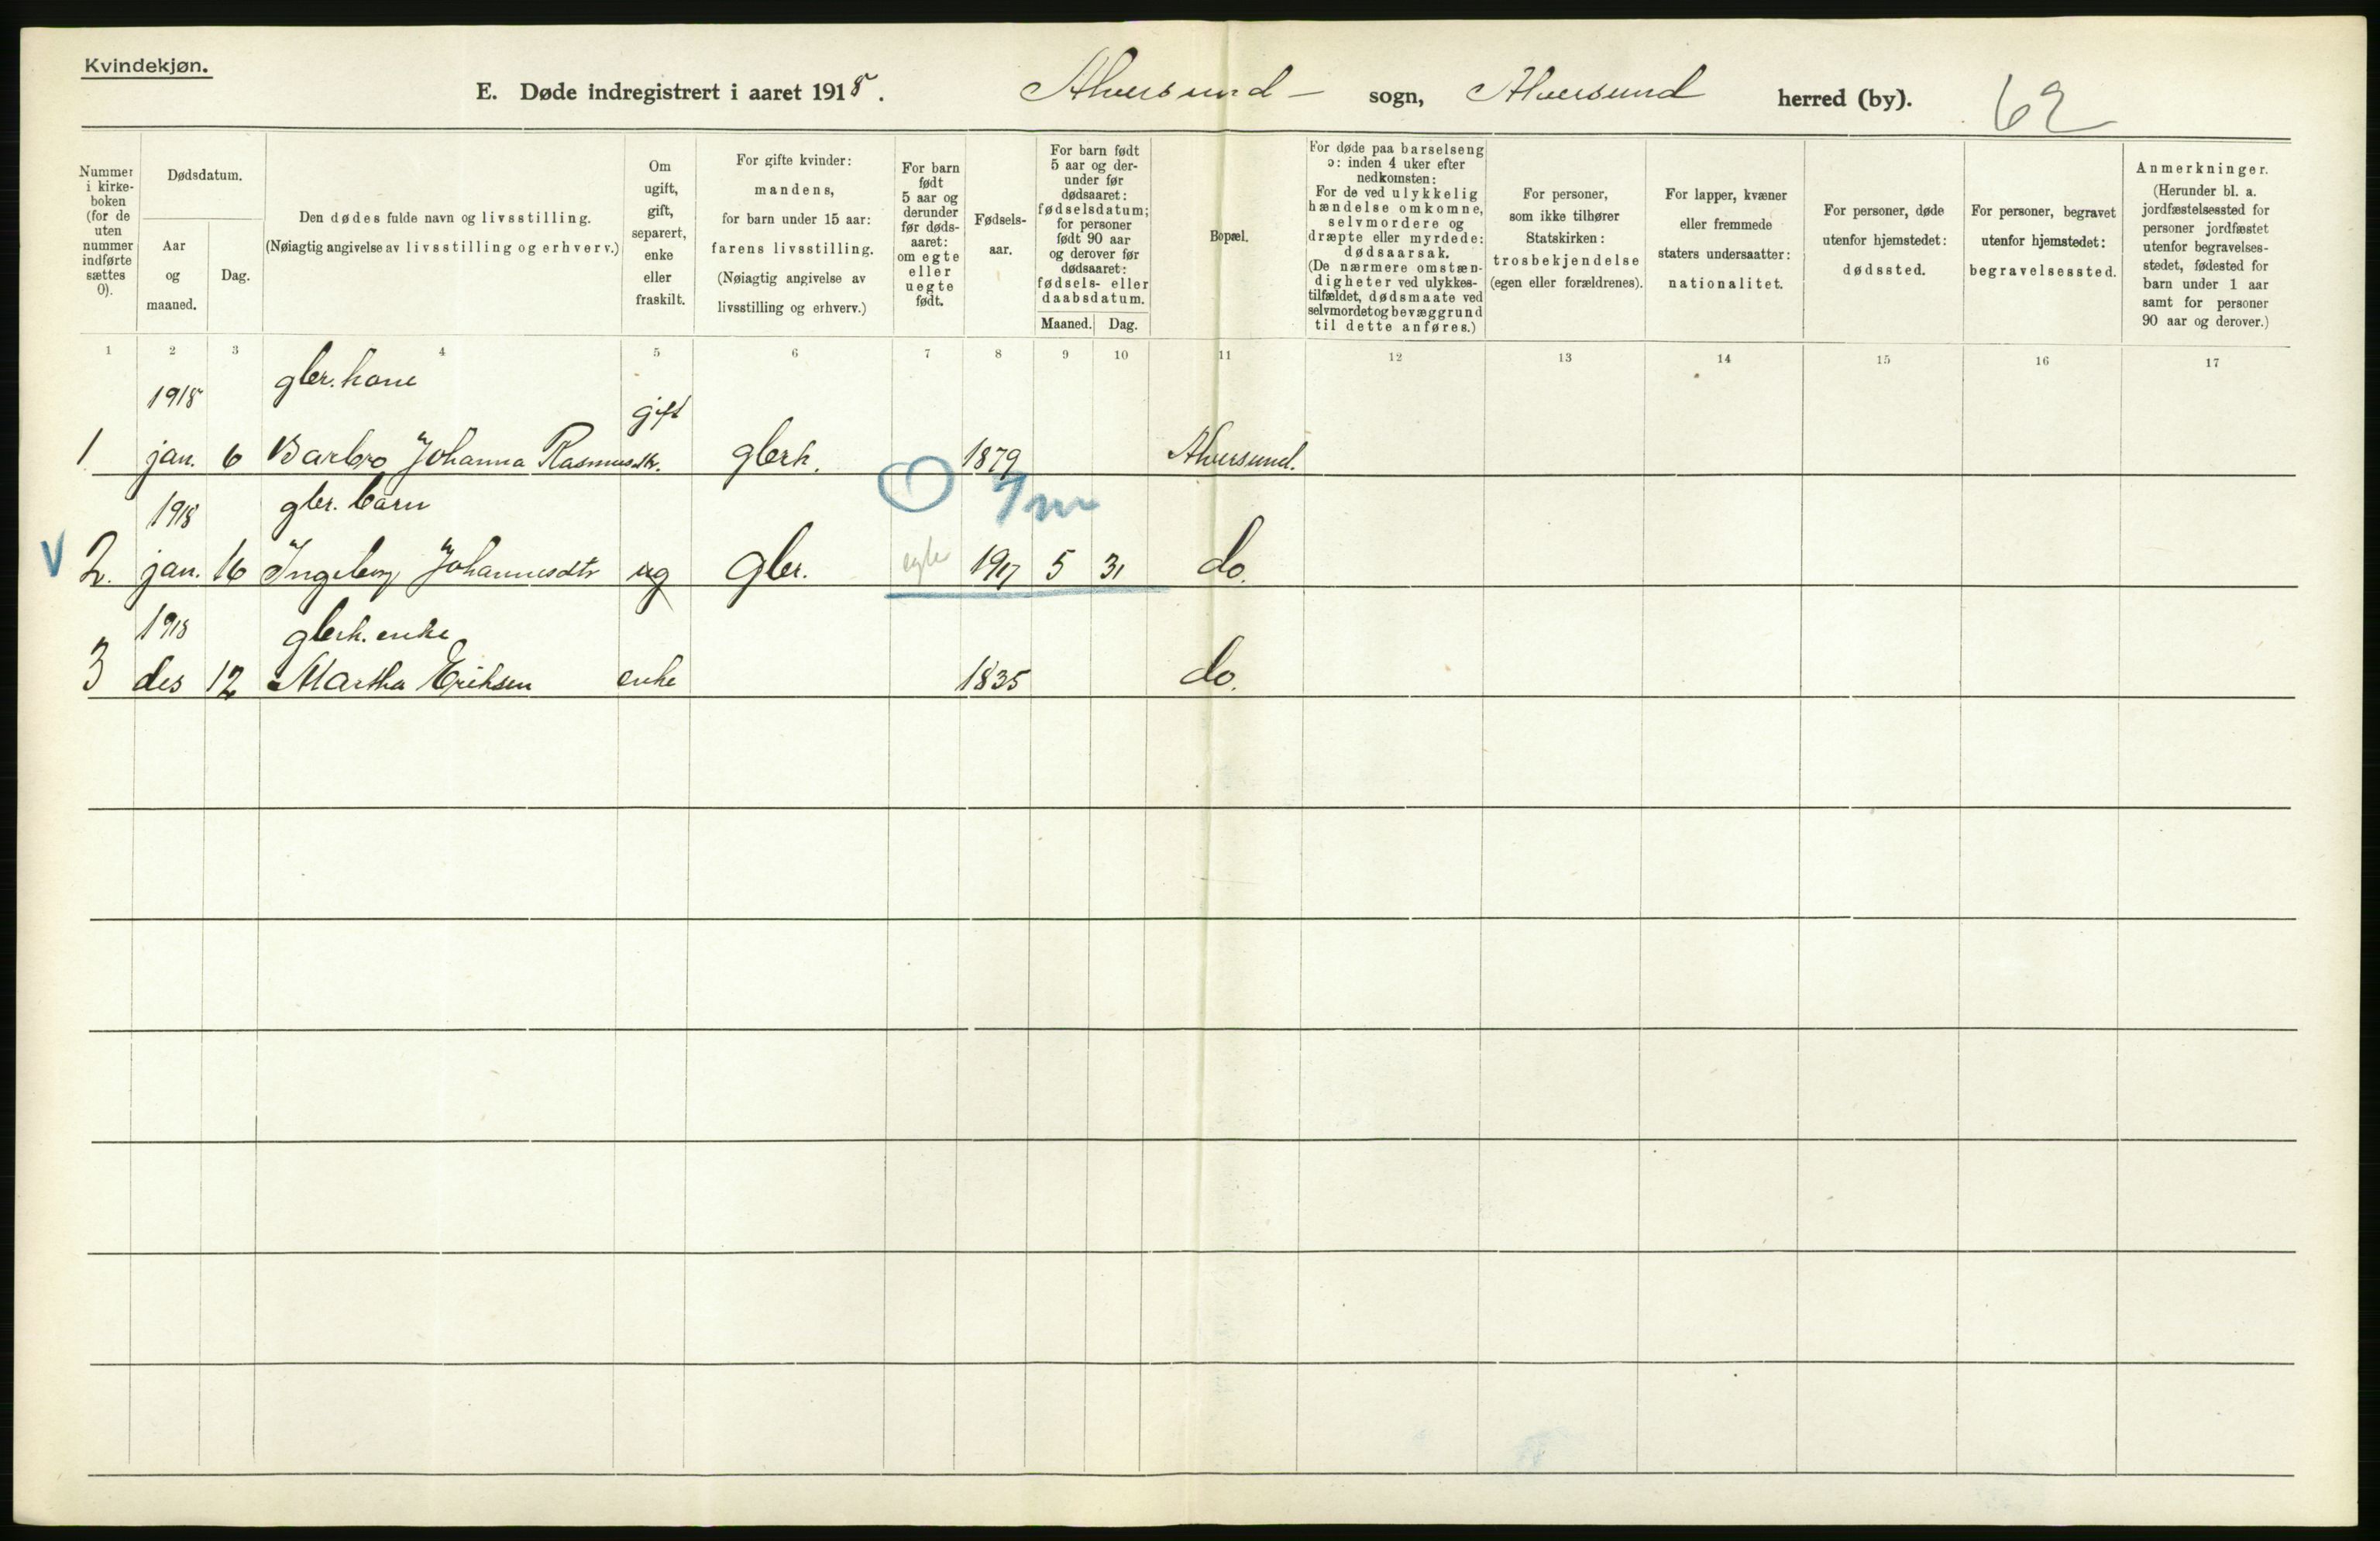 Kvindekjøn.
E. Døde indregistrert i aaret 1918. Alversund - sogn, Alversund herred (by). 62
Nummer i kirkeboken (for de uten nummer indførte sættes 0).
Dødsdatum.
Aar og maaned.
Dag.
Den dødes fulde navn og livsstilling.
(Nøiagtig angivelse av livsstilling og erhverv.)
Om ugift, gift, separert, enke eller fraskilt.
For gifte kvinder: mandens, for barn under 15 aar: farens livsstilling. (Nøiagtig angivelse av livsstilling og erhverv.)
For barn født 5 aar og derunder før dødsaaret: om egte eller uegte født.
Fødselsaar.
For barn født 5 aar og derunder før dødsaaret: fødselsdatum; for personer født 90 aar og derover før dødsaaret: fødsels- eller daabsdatum.
Maaned. Dag.
Bopæl.
For døde paa barselseng ɔ: inden 4 uker efter nedkomsten: For de ved ulykkelig hændelse omkomne, selvmordere og dræpte eller myrdede: dødsaarsak. (De nærmere omstændigheter ved ulykkestilfældet, dødsmaate ved selvmordet og bevæggrund til dette anføres.)
For personer, som ikke tilhører Statskirken: trosbekjendelse (egen eller forældrenes).
For lapper, kvæner eller fremmede staters undersaatter: nationalitet.
For personer, døde utenfor hjemstedet: dødssted.
For personer, begravet utenfor hjemstedet: begravelsessted.
Anmerkninger. (Herunder bl. a. jordfæstelsessted for personer jordfæstet utenfor begravelsesstedet, fødested for barn under 1 aar samt for personer 90 aar og derover.)
1 2 3 4 5 6 7 8 9 10 11 12 13 14 15 16 17
1918 gbr. kone gift
1 jan. 6 Barbro Johanna Rasmusdtr. gbrk. 1879 Alversund.
1918 gbr. barn 7 m
V 2. jan. 16 Ingeborg Johannesdtr ug gbr. egte 1917 5 31 do.
1918 gbrk. enke
3 des 12 Martha Eriksen enke 1835 do.